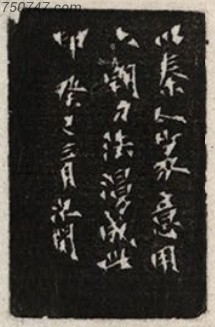 750747.com
以秦人篆意用
六朝刀法漫成此
印癸巳三月